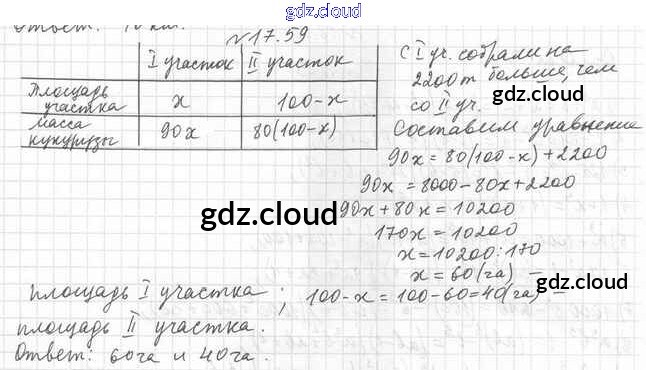 gdz.cloud
Ответ: 10 км.
№17.59
I участок II участок
Площадь участка x 100-x
Масса кукурузы 90x 80(100-x)
С I уч. собрали на
2200т больше, чем
gdz.cloud
со II уч.
Составим уравнение
90x = 80(100-x)+2200
90x = 8000-80x+2200
gdz.cloud
90x+80x=10200
170x=10200
x=10200:170
x=60(га) –
площадь I участка; 100-x=100-60=40(га) –
площадь II участка.
Ответ: 60га и 40га.
gdz.cloud